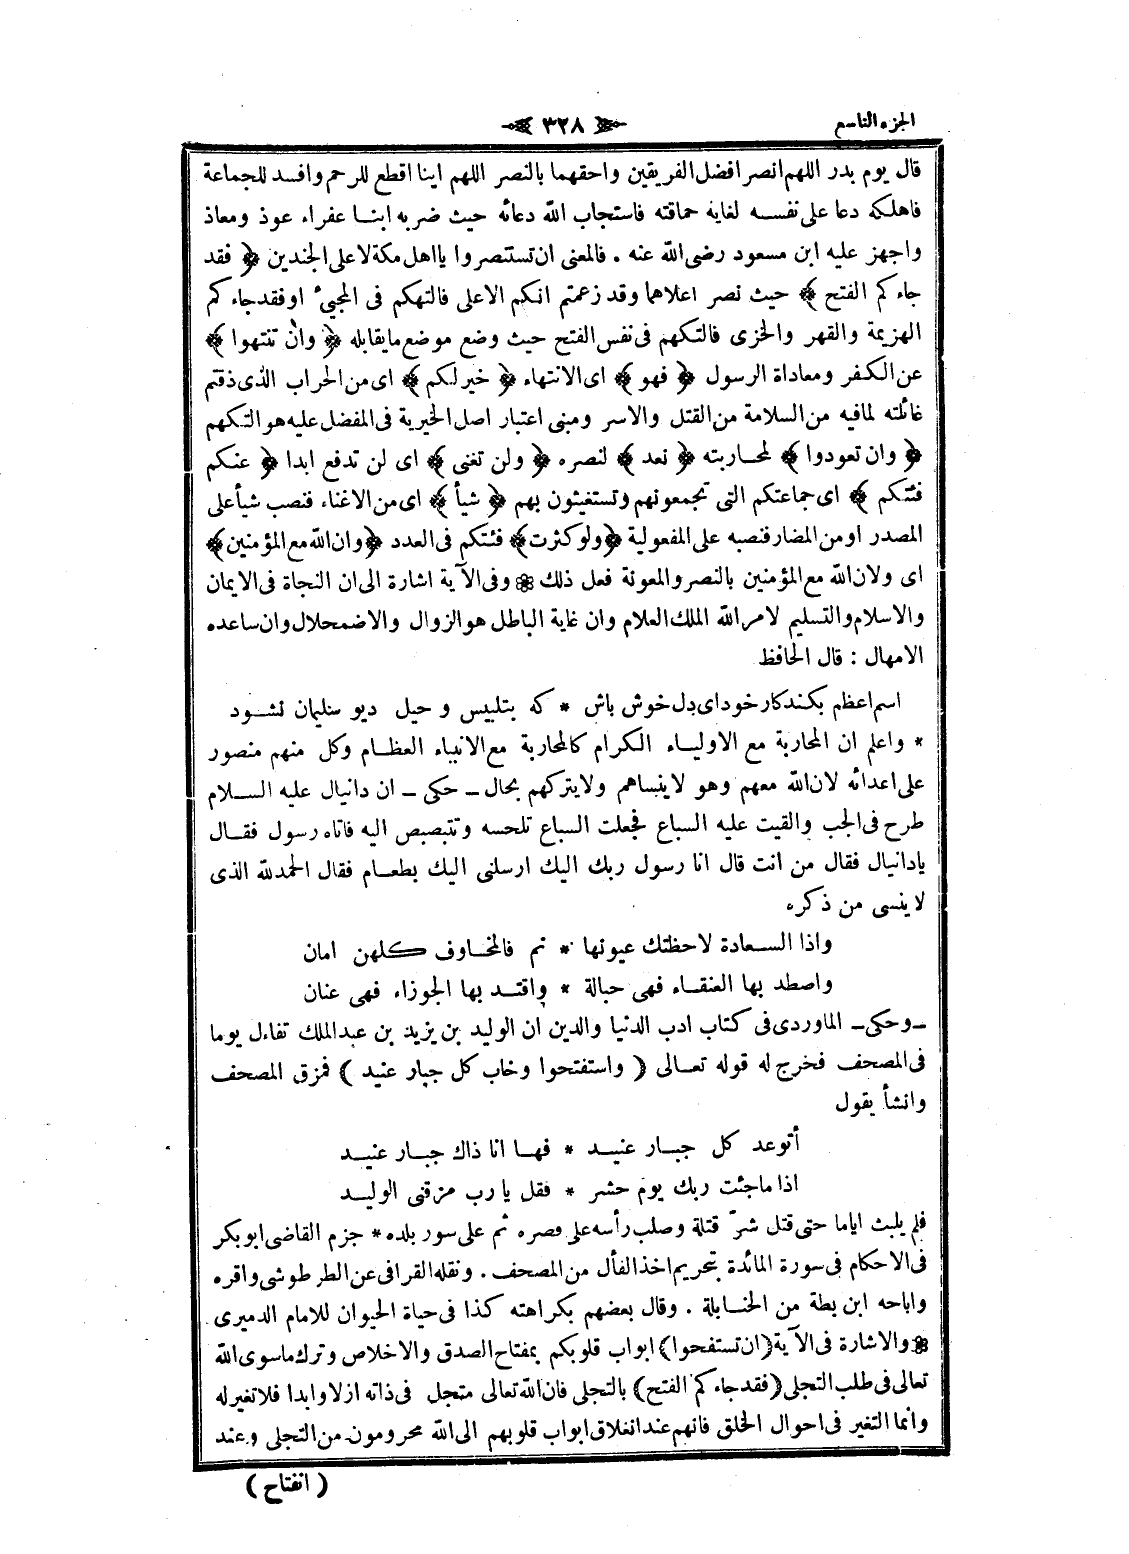 الجزء التاسع
٣٢٨
قال يوم بدر اللهم انصر افضل الفريقين واحقهما بالنصر اللهم اينا اقطع للرحم وافسد للجماعة
فاهلكه دعا على نفسه لغاية حماقته فاستجاب الله دعائه حيث ضربه ابنا عفراء عوذ ومعاذ
واجهز عليه ابن مسعود رضى الله عنه . فالمعنى ان تستنصروا يا اهل مكة لاعلى الجندين ﴿ فقد
جاءكم الفتح ﴾ حيث نصر اعلاهما وقد زعمتم انكم الاعلى فالتهكم فى المجيئ او فقد جاءكم
الهزيمة والقهر والخزى فالتكهم فى نفس الفتح حيث وضع موضع مايقابله ﴿ وان تنتهوا ﴾
عن الكفر ومعاداة الرسول ﴿ فهو ﴾ اى الانتهاء ﴿ خير لكم ﴾ اى من الحراب الذى ذقتم
غائلته لمافيه من السلامة من القتل والاسر ومبنى اعتبار اصل الخيرية فى المفضل عليه هو التكهم
﴿ وان تعودوا ﴾ لمحاربته ﴿ نعد ﴾ لنصره ﴿ ولن تغنى ﴾ اى لن تدفع ابدا ﴿ عنكم
فئتكم ﴾ اى جماعتكم التى تجمعونهم وتستغيثون بهم ﴿ شيأ ﴾ اى من الاغناء فنصب شيأ على
المصدر او من المضار فنصبه على المفعولية ﴿ ولو كثرت ﴾ فئتكم فى العدد ﴿ وان الله مع المؤمنين ﴾
اى ولان الله مع المؤمنين بالنصر والمعونة فعل ذلك ❁ وفى الآية اشارة الى ان النجاة فى الايمان
والاسلام والتسليم لامر الله الملك العلام وان غاية الباطل هو الزوال والاضمحلال وان ساعده
الامهال : قال الحافظ
اسم اعظم بكند كار خود اى دل خوش باش * كه بتلبيس و حيل ديو سليمان نشود
* واعلم ان المحاربة مع الاولياء الكرام كالمحاربة مع الانبياء العظام وكل منهم منصور
على اعدائه لان الله معهم وهو لاينساهم ولايتركهم بحال ـ حكى ـ ان دانيال عليه السلام
طرح فى الجب والقيت عليه السباع فجعلت السباع تلحسه وتتبصبص اليه فاتاه رسول فقال
يادانيال فقال من انت قال انا رسول ربك اليك ارسلنى اليك بطعام فقال الحمدلله الذى
لا ينسى من ذكره
واذا السعادة لاحظتك عيونها * نم فالمخاوف كلهن امان
واصطد بها العنقاء فهى حبالة * واقتد بها الجوزاء فهى عنان
ـ وحكى ـ الماوردى فى كتاب ادب الدنيا والدين ان الوليد بن يزيد بن عبدالملك تفاءل يوما
فى المصحف فخرج له قوله تعالى ( واستفتحوا وخاب كل جبار عنيد ) فمزق المصحف
وانشأ يقول
أتوعد كل جبار عنيد * فها انا ذاك جبار عنيد
اذا ماجئت ربك يوم حشر * فقل يا رب مزقنى الوليد
فلم يلبث اياما حتى قتل شرّ قتلة وصلب رأسه على قصره ثم على سور بلده * جزم القاضى ابوبكر
فى الاحكام فى سورة المائدة بتحريم اخذ الفأل من المصحف . ونقله القرافى عن الطرطوشى واقره
واباحه ابن بطة من الحنابلة . وقال بعضهم بكراهته كذا فى حياة الحيوان للامام الدميرى .
❁ والاشارة فى الآية ( ان تستفحوا ) ابواب قلوبكم بمفتاح الصدق والاخلاص وترك ماسوى الله
تعالى فى طلب التجلى ( فقد جاءكم الفتح ) بالتجلى فان الله تعالى متجل فى ذاته ازلا وابدا فلا تغير له
وانما التغير فى احوال الخلق فانهم عند انغلاق ابواب قلوبهم الى الله محرومون من التجلى وعند
( انفتاح )